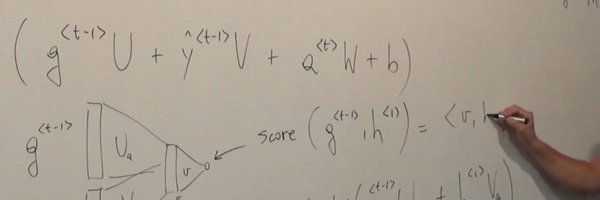 ( g^<t-1> U + ŷ^<t-1> V + a^<t> W + b )
g^<t-1> U_a v score ( g^<t-1>, h^<1> ) = < v,
^<t-1> + h^<1> V_a )